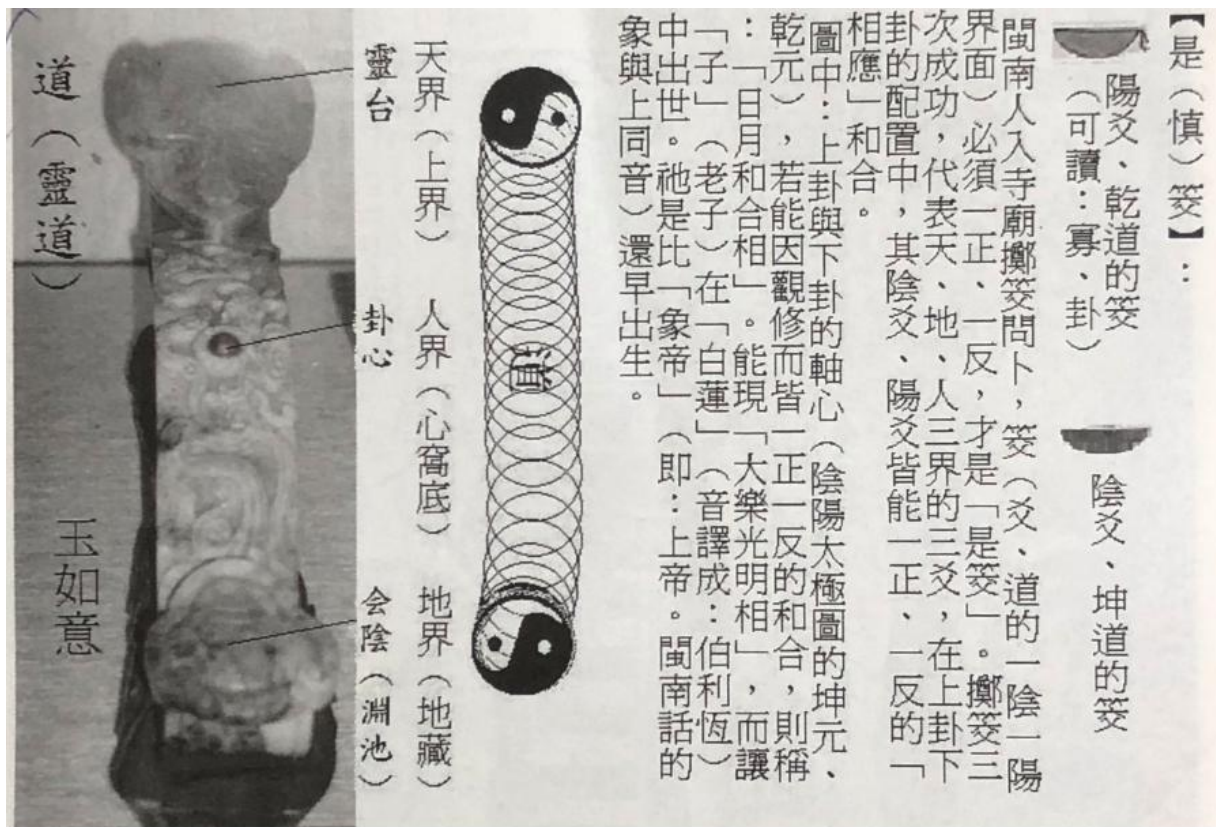 【是（慎）筊】：
陽爻、乾道的筊
（可讀：寡、卦）
陰爻、坤道的筊
閩南人入寺廟擲筊問卜，筊（爻、道的一陰一陽
界面）必須一正、一反，才是「是筊」。擲筊三
次成功，代表天、地、人三界的三爻，在上卦下
卦的配置中，其陰爻、陽爻皆能一正、一反的「
相應」和合。
圖中：上卦與下卦的軸心（陰陽太極圖的坤元、
乾元），若能因觀修而皆一正一反的和合，則稱
：「日月和合相」。能現「大樂光明相」，而讓
「子」（老子）在「白蓮」（音譯成：伯利恆）
中出世。祂是比「象帝」（即：上帝。閩南話的
象與上同音）還早出生。
道
天界（上界）
人界（心窩底）
地界（地藏）
靈台
卦心
会陰（淵池）
道（靈道）
玉如意